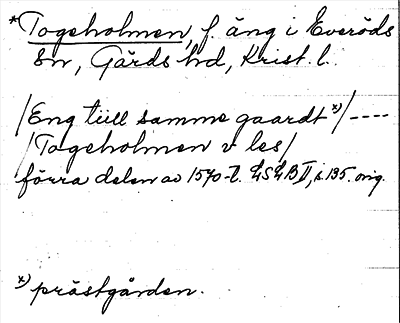 *Togeholmen, f. äng i Everöds
sn, Gärds hd, Krist. l.
/Eng tiill samme gaardt x)/----
/Togeholmen v les/
förra delen av 1570-t. LSLB II, s. 135. orig.
x) prästgården.